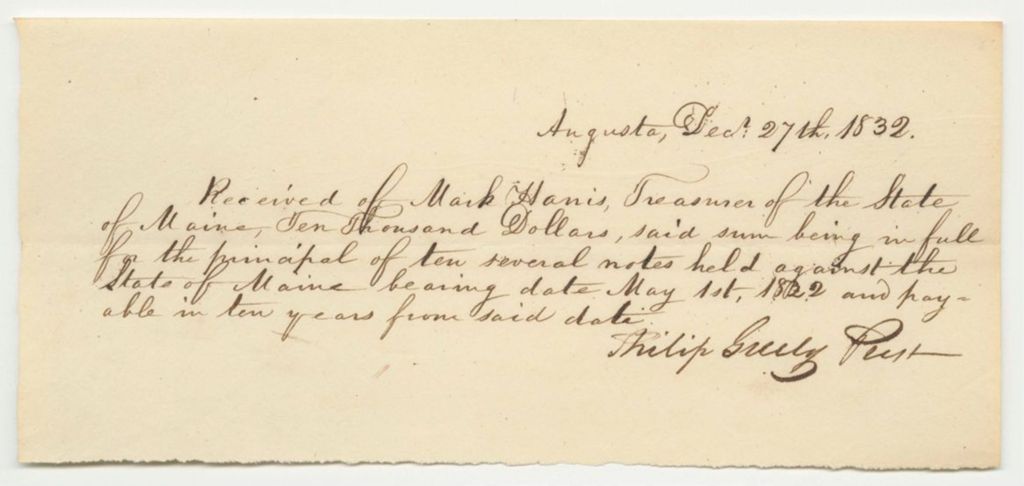 Augusta, Decr. 27th, 1832.
Received of Mark Harris, Treasurer of the State
of Maine, Ten Thousand Dollars, said sum being in full
for the principal of ten several notes held against the
State of Maine bearing date May 1st, 1822 and pay=
able in ten years from said date.
Philip Greely Prest